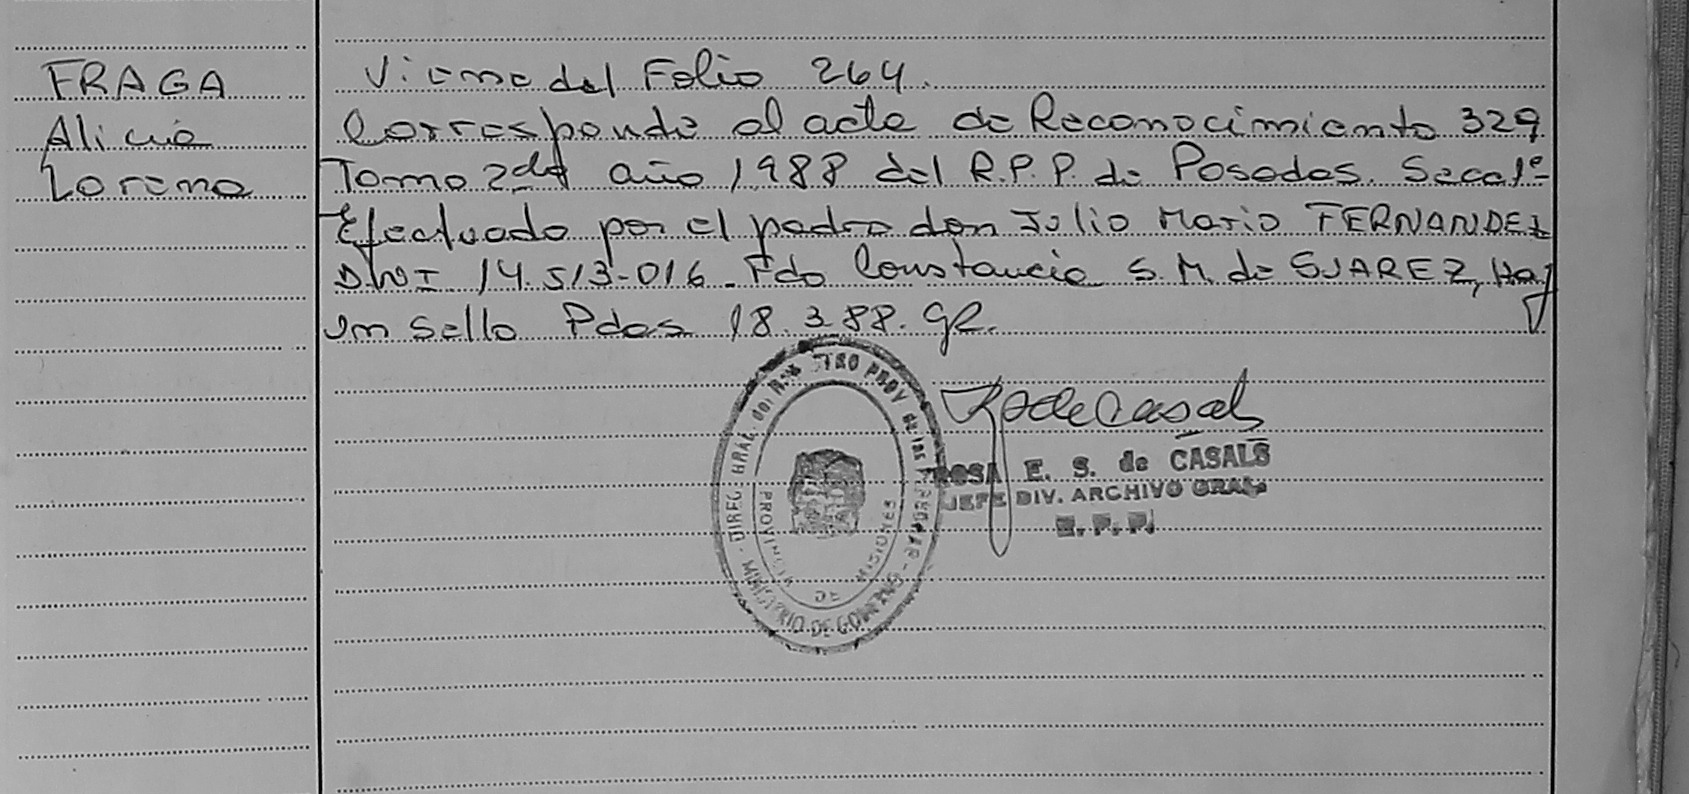 FRAGA
Alicia
Lorena
Viene del Folio 264.
Corresponde al acta de Reconocimiento 329
Tomo 2do año 1988 del R.P.P. de Posadas. Secc 1ª
Efectuado por el padre don Julio Mario FERNANDEZ
DNI 14.513-016. Fdo Constancia S. M. de SUAREZ, Hay
un sello Pdas 18.3.88. gr.
DIREC. GRAL. del REGISTRO PROV. de las PERSONAS
MINISTERIO DE GOBIERNO
PROVINCIA DE MISIONES
R de Casals
ROSA E. S. de CASALS
JEFE DIV. ARCHIVO GRAL
R. P. P.